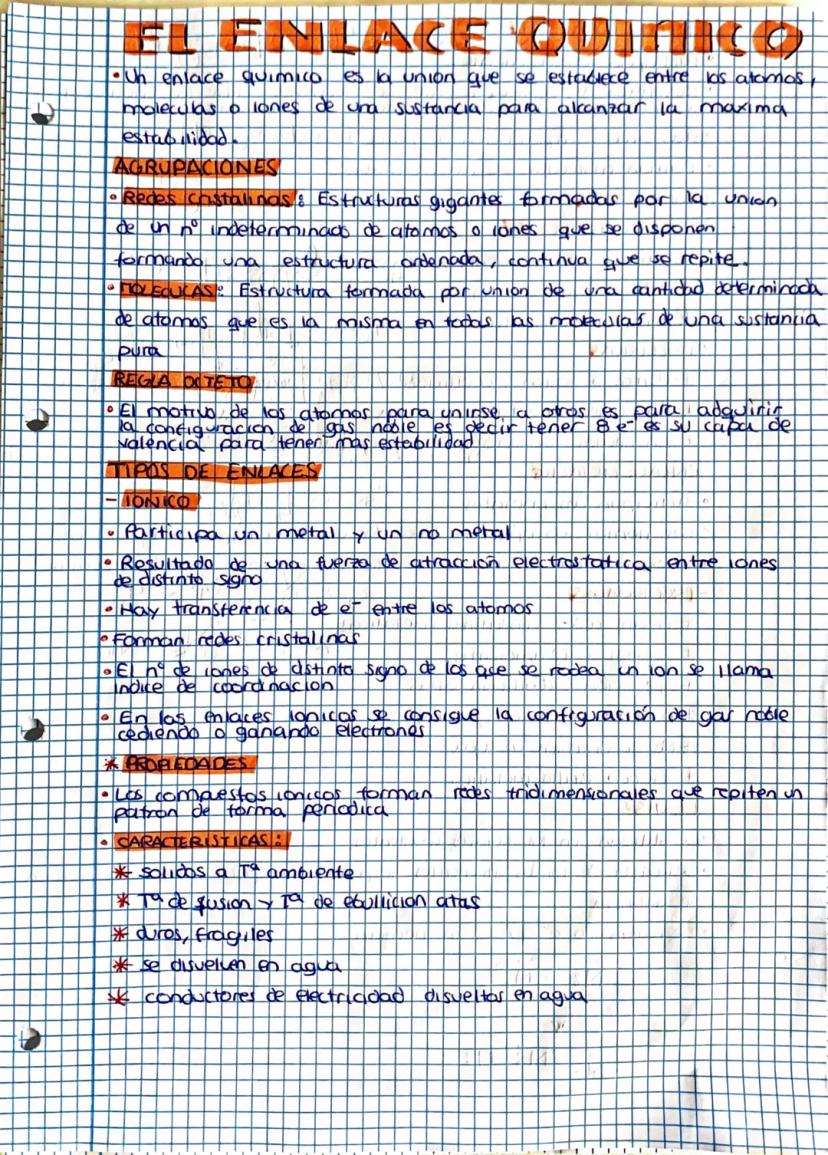 EL ENLACE QUIMICO
• Un enlace quimico es la union que se establece entre los atomos,
moleculas o iones de una sustancia para alcanzar la maxima
estabilidad.
AGRUPACIONES
• Redes cristalinas: Estructuras gigantes formadas por la union
de un nº indeterminado de atomos o iones que se disponen
formando una estructura ordenada, continua que se repite.
• MOLECULAS: Estructura formada por union de una cantidad determinada
de atomos que es la misma en todas las moleculas de una sustancia
pura
REGLA OCTETO
• El motivo de los atomos para unirse a otros es para adquirir
la configuracion de gas noble es decir tener 8 e⁻ es su capa de
valencia para tener mas estabilidad
TIPOS DE ENLACES
- IONICO
• Participa un metal y un no metal
• Resultado de una fuerza de atracción electrostatica entre iones
de distinto signo
• Hay transferencia de e⁻ entre los atomos
• Forman redes cristalinas
• El nº de iones de distinto signo de los que se rodea un ion se llama
indice de coordinacion
• En los enlaces ionicos se consigue la configuración de gas noble
cediendo o ganando electrones
* PROPIEDADES
• Los compuestos ionicos forman redes tridimensionales que repiten un
patron de forma periodica
• CARACTERISTICAS:
* solidos a Tª ambiente
* Tª de fusion y Tª de ebullicion altas
* duros, fragiles
* se disuelven en agua
* conductores de electricidad disueltos en agua